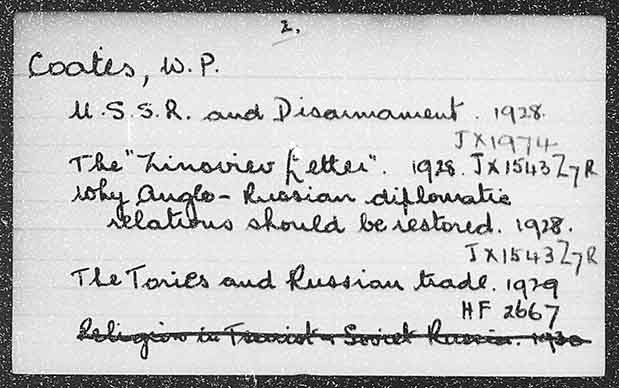 2.
Coates, W.P.
U.S.S.R. and Disarmament. 1928.
JX1974
The "Zinoviev Letter". 1928. JX1543Z7R
Why Anglo-Russian diplomatic
relations should be restored. 1928.
JX1543Z7R
The Tories and Russian trade. 1929
HF 2667
Religion in Tsarist & Soviet Russia. 1930